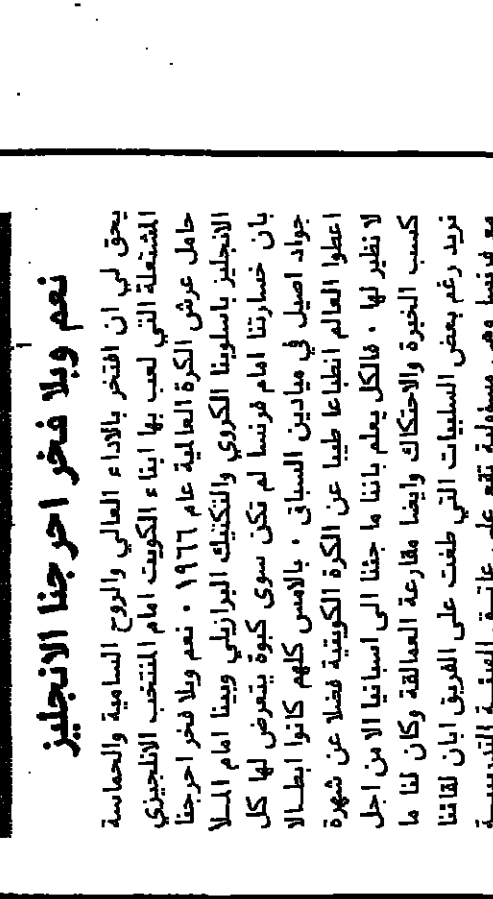 نعم وبلا فخر احرجنا الانجليز
يحق لي ان افتخر بالاداء العالي والروح السامية والحماسة
المشتعلة التي لعب بها ابناء الكويت امام المنتخب الانجليزي
حامل عرش الكرة العالمية عام ١٩٦٦ ٠ نعم وبلا فخر احرجنا
الانجليز باسلوبنا الكروي والتكتيك البرازيلي وبينا امام الملأ
بان خسارتنا امام فرنسا لم تكن سوى كبوة يتعرض لها كل
جواد اصيل في ميادين السباق ٠ بالامس كلهم كانوا ابطالا
اعطوا العالم انطباعا طيبا عن الكرة الكويتية فضلا عن شهرة
لا نظير لها ٠ فالكل يعلم باننا ما جئنا الى اسبانيا الا من اجل
كسب الخبرة والاحتكاك وايضا مقارعة العمالقة وكان لنا ما
نريد رغم بعض السلبيات التي طغت على الفريق ابان لقائنا
مع فرنسا وهي مسؤولية تقع على عاتق الهيئة التدريبية